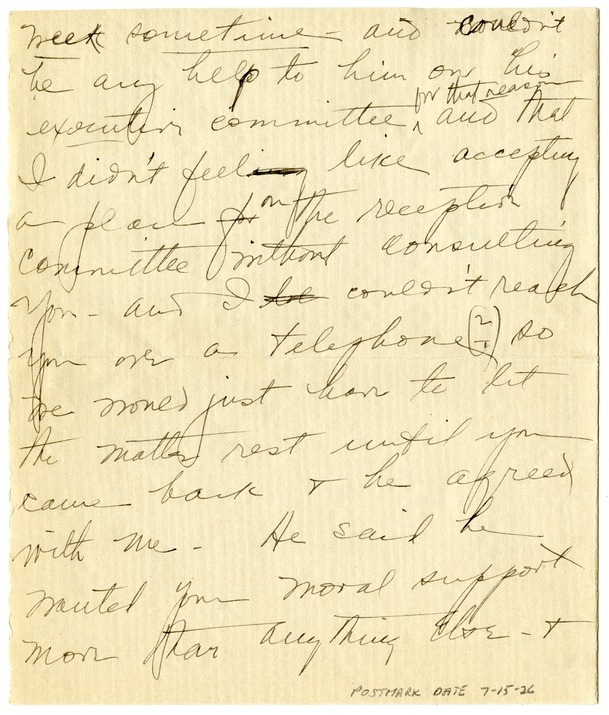 week sometime - and couldn't
be any help to him on his
executive committee for that reason and that
I didn't feel like accepting
a place on the reception
committee without consulting
you - and I couldn't reach
you over a telephone (?) so
we would just have to let
the matter rest until you
came back & he agreed
with me - He said he
wanted your moral support
more than anything else - &
POSTMARK DATE 7-15-26